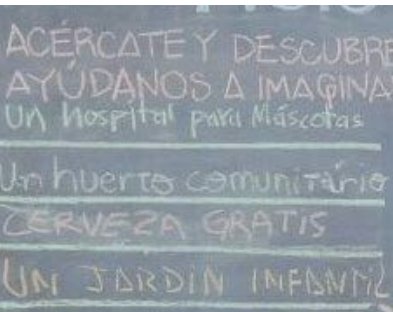 ACÉRCATE Y DESCUBRE
AYÚDANOS A IMAGINA
Un Hospital para Máscotas
Un huerto comunitário
CERVEZA GRATIS
UN JARDIN INFANTIL